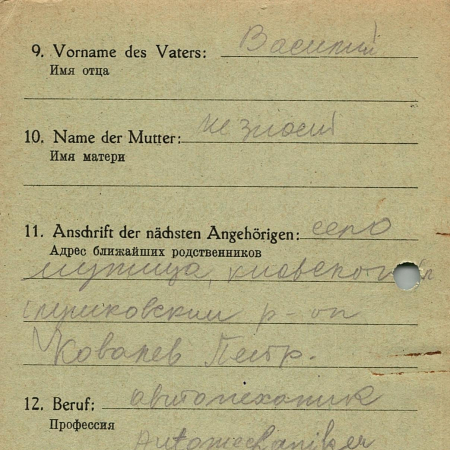 9. Vorname des Vaters: Василий
Имя отца
10. Name der Mutter: незнает
Имя матери
11. Anschrift der nächsten Angehörigen: село
Адрес ближайших родственников
киевской
р-он
Ковалев Петр.
12. Beruf: автомеханик
Профессия
Automechaniker